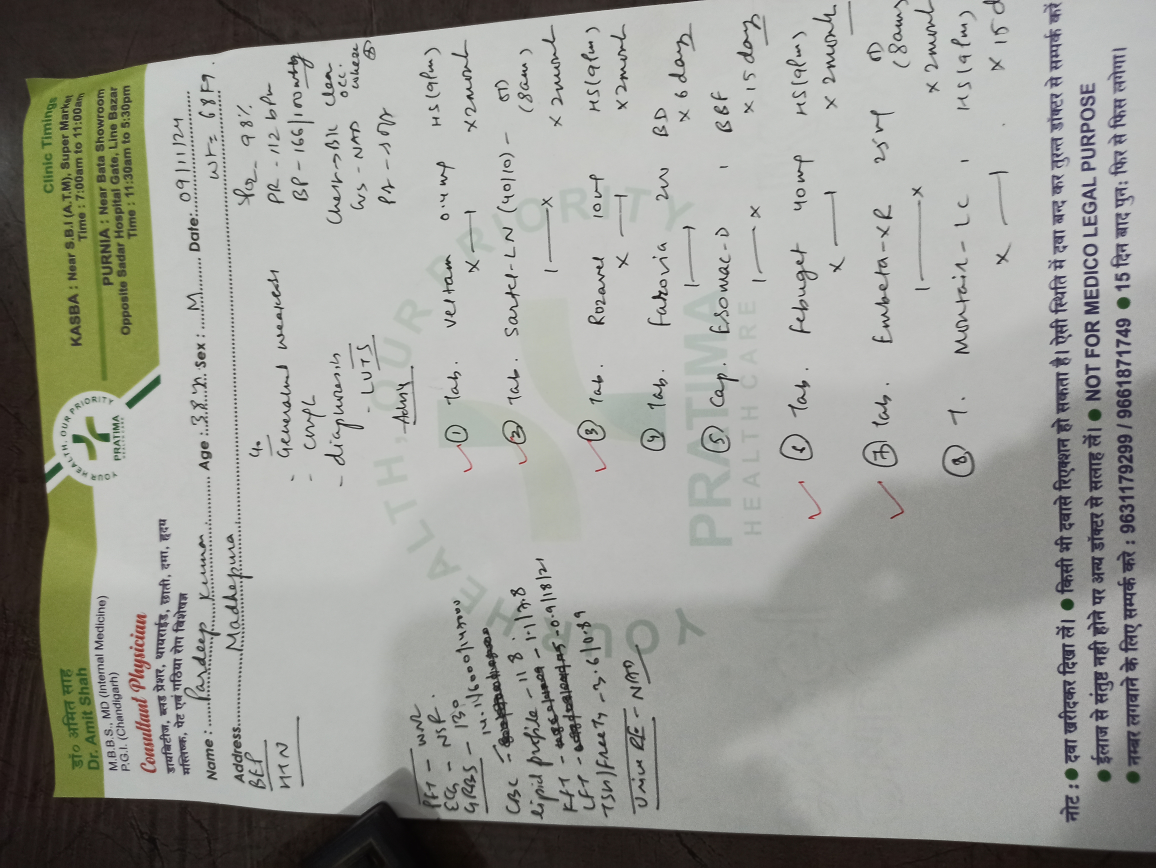 डॉ० अमित साह
Dr. Amit Shah
M.B.B.S., MD (Internal Medicine)
P.G.I. (Chandigarh)
Consultant Physician
डायबिटीज, ब्लड प्रेशर, थायराईड, छाती, दमा, हृदय
मस्तिष्क, पेट एवं गठिया रोग विशेषज्ञ
YOUR HEALTH, OUR PRIORITY
PRATIMA
Clinic Timings
KASBA : Near S.B.I (A.T.M), Super Market
Time : 7:00am to 11:00am
PURNIA : Near Bata Showroom
Opposite Sadar Hospital Gate, Line Bazar
Time : 11:30am to 5:30pm
Name : Pardeep Kumar Age : 38 Y Sex : M Date: 09/11/24
Address Madhepura Wt = 68 kg.
BEP
HTN
C/o
- General weakness
-
- diaphoresis
- LUTS
SpO2 - 98%
PR - 112 bpm
BP - 166/100 mmHg
Chest → B/L clear
occ. wheeze
CVS - NAD
PA - soft
PFT - WNL
ECG - NSR.
GRBS - 130
CBC - 14.1/6000/145000
lipid profile - 118
KFT - 1.1/7.8
LFT - 0.9/18/21
TSH/Free T3 - 3.6/0.89
Urine RE - NAD
Adv
① Tab. Veltam 0.4 mg HS (9pm)
x — 1 x 2 month
② Tab. Sartel-LN (40/10) - OD (8am)
1 — x x 2 month
③ Tab. Rozavel 10mg HS (9pm)
x — 1 x 2 month
④ Tab. Farovia 200 BD
1 — 1 x 6 day
⑤ Cap. Esomac-D 1 BBF
1 — x x 15 day
⑥ Tab. Febuget 40mg HS (9pm)
x — 1 x 2 month
⑦ Tab. Embeta-XR 25mg OD (8am)
1 — x x 2 month
⑧ T. Montair-LC 1 HS (9pm)
x — 1 x 15 d
YOUR HEALTH, OUR PRIORITY
PRATIMA
HEALTH CARE
नोट : ● दवा खरीदकर दिखा लें। ● किसी भी दवासे रिएक्शन हो सकता है। ऐसी स्थिति में दवा बन्द कर तुरन्त डॉक्टर से सम्पर्क करें
● ईलाज से संतुष्ट नही होने पर अन्य डॉक्टर से सलाह लें। ● NOT FOR MEDICO LEGAL PURPOSE
● नम्बर लगवाने के लिए सम्पर्क करे : 9631179299 / 9661871749 ● 15 दिन बाद पुनः फिर से फिस लगेगा।